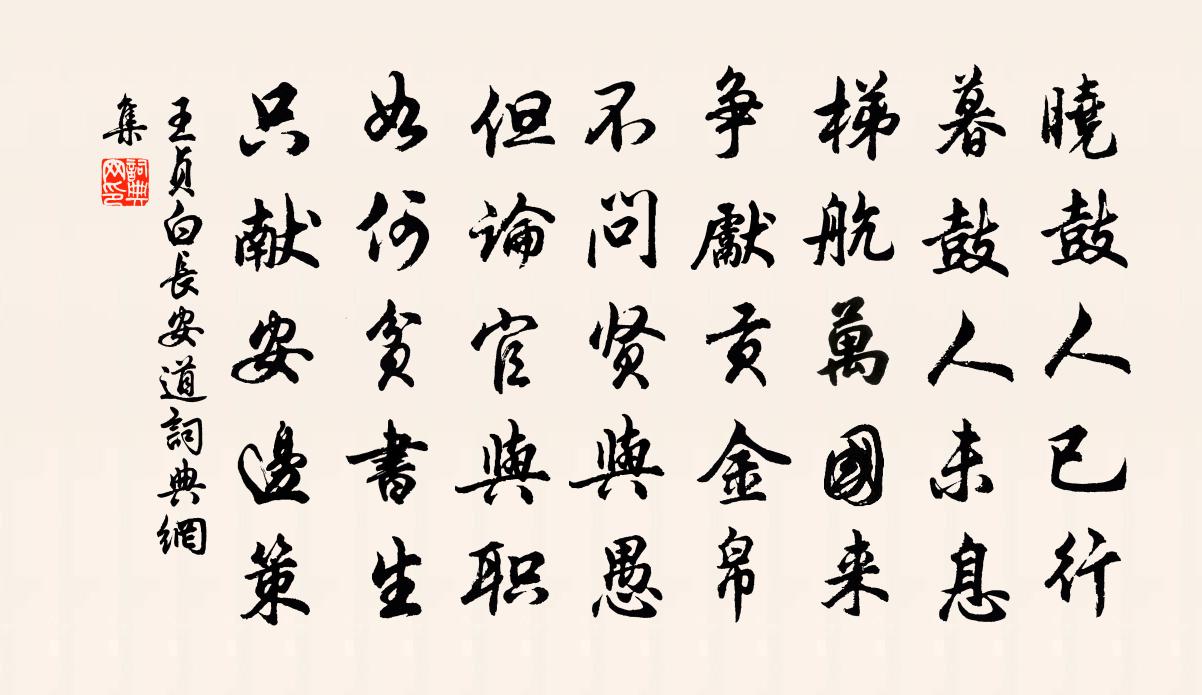 曉鼓人已行
暮鼓人未息
梯航萬國来
争獻貢金帛
不问贤與愚
但論官與职
如何貧書生
只献安邊策
王貞白長安道詞典網
集
詞典網印